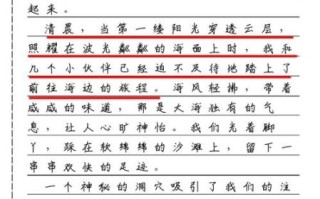 起来。
清晨，当第一缕阳光穿透云层，
照耀在波光粼粼的海面上时，我和
几个小伙伴已经迫不及待地踏上了
前往海边的旅程。海风轻拂，带着
咸咸的味道，那是大海独有的气
息，让人心旷神怡。我们光着脚
丫，踩在软绵绵的沙滩上，留下一
串串欢快的足迹。
一个神秘的洞穴吸引了我们的注